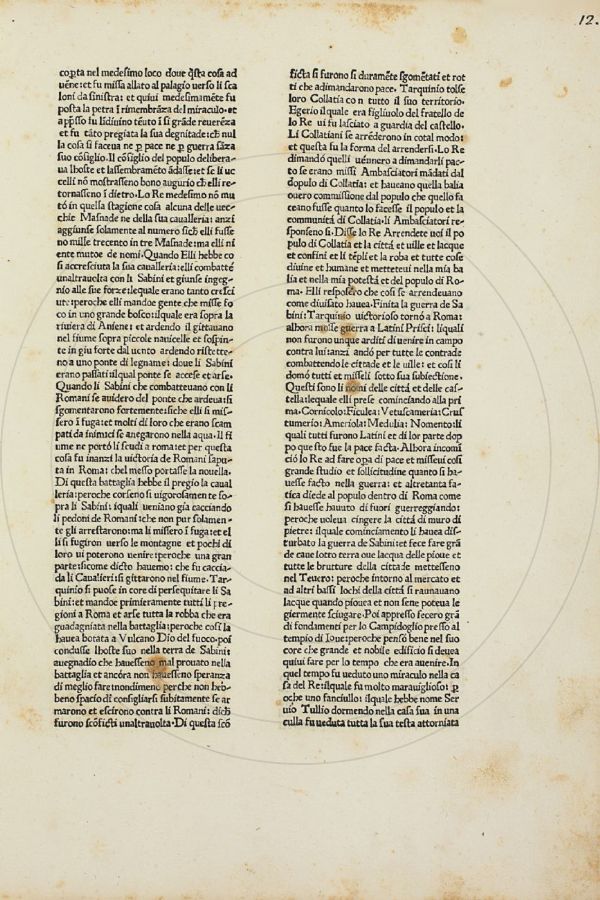 12.
cop̄ta nel medesimo loco doue q̄sta cosa ad
uēne:et fu missa allato al palagio uerso li sca
loni da sinistra: et quiui medesimamēte fu
posta la petra ī rimembrāza del miraculo·et
a pp̄sso fu līdiuino tēuto ī si grāde reuerēza
et fu tāto pregiata la sua degnitade:ch̄ nul
la cosa si facea ne p̱ pace ne p̱ guerra sāza
suo cōsiglio. Il cōsiglio del populo delibera-
ua lhoste et lassembramēto ādasse:et se li uc
celli nō mostrasseno bono augurio ch̄ elli re-
tornasseno ī dietro. Lo Re medesimo nō mu
tò in questa stagione cosa alcuna delle uec-
chie Masnade ne della sua caualleria: anzi
aggiunse solamente al numero sich̄ elli fusse
no mille trecento in tre Masnade:ma elli ni
ente mutoe de nomi. Quando Elli hebbe co
si accresciuta la sua caualleria:elli combatté
unaltrauolta con li Sabini et giunse ingeg-
nio alle sue forze:lequale erano tanto cresci
ute:peroche elli mandoe gente che misse fo
co in uno grande bosco:ilquale era sopra la
riuiera di Aniene: et ardendo il gittauano
nel fiume sopra piccole nauicelle et sospin-
te in giu forte dal uento ardendo ristette-
no a uno ponte di legname:doue li Sabini
erano passati:ilqual ponte se accese et arse.
Quando li Sabini che combatteuano con li
Romani se auidero del ponte che ardeua:si
sgomentarono fortemente:siche elli si mis-
sero ī fuga:et molti di loro che erano scam
pati da inimici se anegarono nella aqua. Il fi
ume ne portò li scudi a roma:et per questa
cosa fu inanzi la uictoria de Romani sap̱u-
ta in Roma: chel messo portasse la nouella.
Di questa battaglia hebbe il pregio la caual
leria:peroche corseno si uigorosamente so-
pra li Sabini: iquali ueniano gia cacciando
li pedoni de Romani:che non pur solamen-
te gli arrestarono:ma li missero ī fuga:et el
li si fugiron uerso le montagne et pochi di
loro ui poterono uenire:peroche una gran
parte:sicome dicto hauemo: che fu caccia-
da li Caualieri:si gittarono nel fiume. Tar-
quinio si puose in core di persequitare li Sa
bini:et mandoe primieramente tutti li pre-
gioni a Roma et arse tutta la robba che era
guadagnata nella battaglia:peroche cosi la
hauea botata a Vulcano Dio del fuoco·poi
condusse lhoste suo nella terra de Sabini:
auegnadio che hauesseno mal prouato nella
battaglia et ancóra non hauesseno speranza
di meglio fare:nondimeno perche non heb-
beno spacio di cōsigliarsi subitamente se ar
marono et escirono contra li Romani: dich̄
furono scōficti unaltrauolta·Di questa scō
ficta si furono si duramēte sgomētati et rot
ti che adimandarono pace. Tarquinio tolse
loro Collatia con tutto il suo territorio.
Egerio il quale era figliuolo del fratello de
lo Re ui fu lasciato a guardia del castello.
Li Collatiani se arrēderono in cotal modo:
et questa fu la forma del arrendersi. Lo Re
dimandò quelli uēnero a dimandarli pac-
to se erano missi Ambasciatori mādati dal
dopulo di Collatia: et haueano quella balia
ouero commissione dal populo che quello fa
ceano fusse quanto lo facesse il populo et la
communità di Collatia·li Ambasciatori re-
sponseno si. Disse lo Re Arrendete uoi il po
pulo di Collatia et la città et uille et lacque
et confini et li tēpli et la roba et tutte cose
diuine et humane et metteteui nella mia ba
lia et nella mia potestà et del populo di Ro-
ma. Elli resposero che cosi se arrendeuano
come diuisato hauea. Finita la guerra de Sa
bini:Tarquinio uictorioso tornò a Roma:
alhora mosse guerra a Latini Prisci: liquali
non furono unque arditi di uenire in campo
contra lui:anzi andò per tutte le contrade
combattendo le cittade et le uille: et cosi li
domò tutti et misseli sotto sua subiectione.
Questi sono li nomi delle città et delle cas-
tella:lequale elli prese cominciando alla pri
ma. Cornicolo: Ficulea: Vetuscameria: Crus
tumerio: Ameriola: Medulia: Nomento: li
quali tutti furono Latini et di lor parte dop
po que sto fue la pace facta. Alhora incomi
ciò lo Re ad fare op̱a di pace et misseui cosi
grande studio et sollicitudine quanto si ha-
uesse facto nella guerra: et altretanta fa-
tica diede al populo dentro di Roma come
si hauesse hauuto di fuori guerreggiando:
peroche uoleua cingere la città di muro di
pietre: ilquale cominciamento li hauea dis-
turbato la guerra de Sabini:et fece fare grā
de caue sotto terra oue lacqua delle pioue et
tutte le brutture della cittade mettesseno
nel Teuero: peroche intorno al mercato et
ad altri bassi lochi della città si raunauano
lacque quando piouea et non sene poteua le
giermente sciugare. Poi appresso fecero grā
di fondamenti per lo Campidoglio presso al
tempio di Ioue:peroche pensò bene nel suo
core che grande et nobile edificio si deuea
quiui fare per lo tempo che era auenire. In
quel tempo fu ueduto uno miraculo nella ca
sa del Re:ilquale fu molto marauiglioso: p̱
oche uno fanciullo: ilquale hebbe nome Ser
uio Tullio dormendo nella casa sua in una
culla fu ueduta tutta la sua testa attorniata